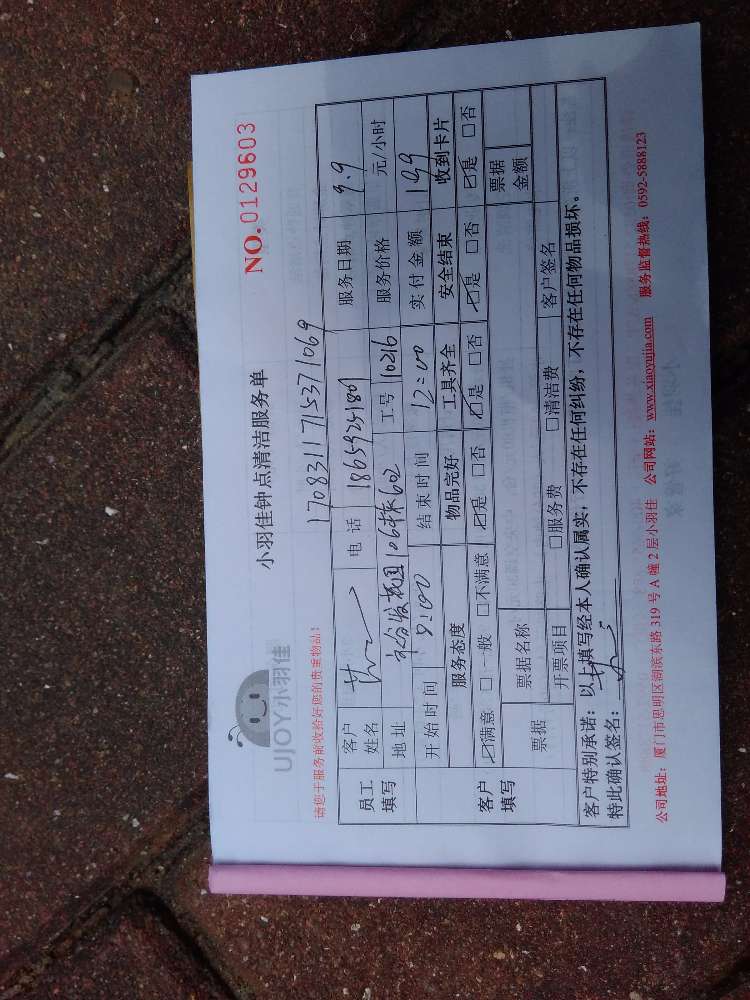 UJOY小羽佳
小羽佳钟点清洁服务单
NO.0129603
请您于服务前收拾好您的贵重物品!
1708311715371069
员工填写
客户姓名 电话 18659251801 服务日期 9.9
地址 106栋602 工号 10216 服务价格 元/小时
开始时间 9:00 结束时间 12:00 实付金额 149
客户填写
服务态度 物品完好 工具齐全 安全结束 收到卡片
☑满意 □一般 □不满意 ☑是 □否 ☑是 □否 ☑是 □否 ☑是 □否
票据 票据名称 票据金额
开票项目 □服务费 □清洁费 客户签名
客户特别承诺:以上填写经本人确认属实,不存在任何纠纷,不存在任何物品损坏。
特此确认签名:
公司地址:厦门市思明区湖滨东路 319 号 A 幢 2 层小羽佳 公司网站:www.xiaoyujia.com 服务监督热线:0592-5888123